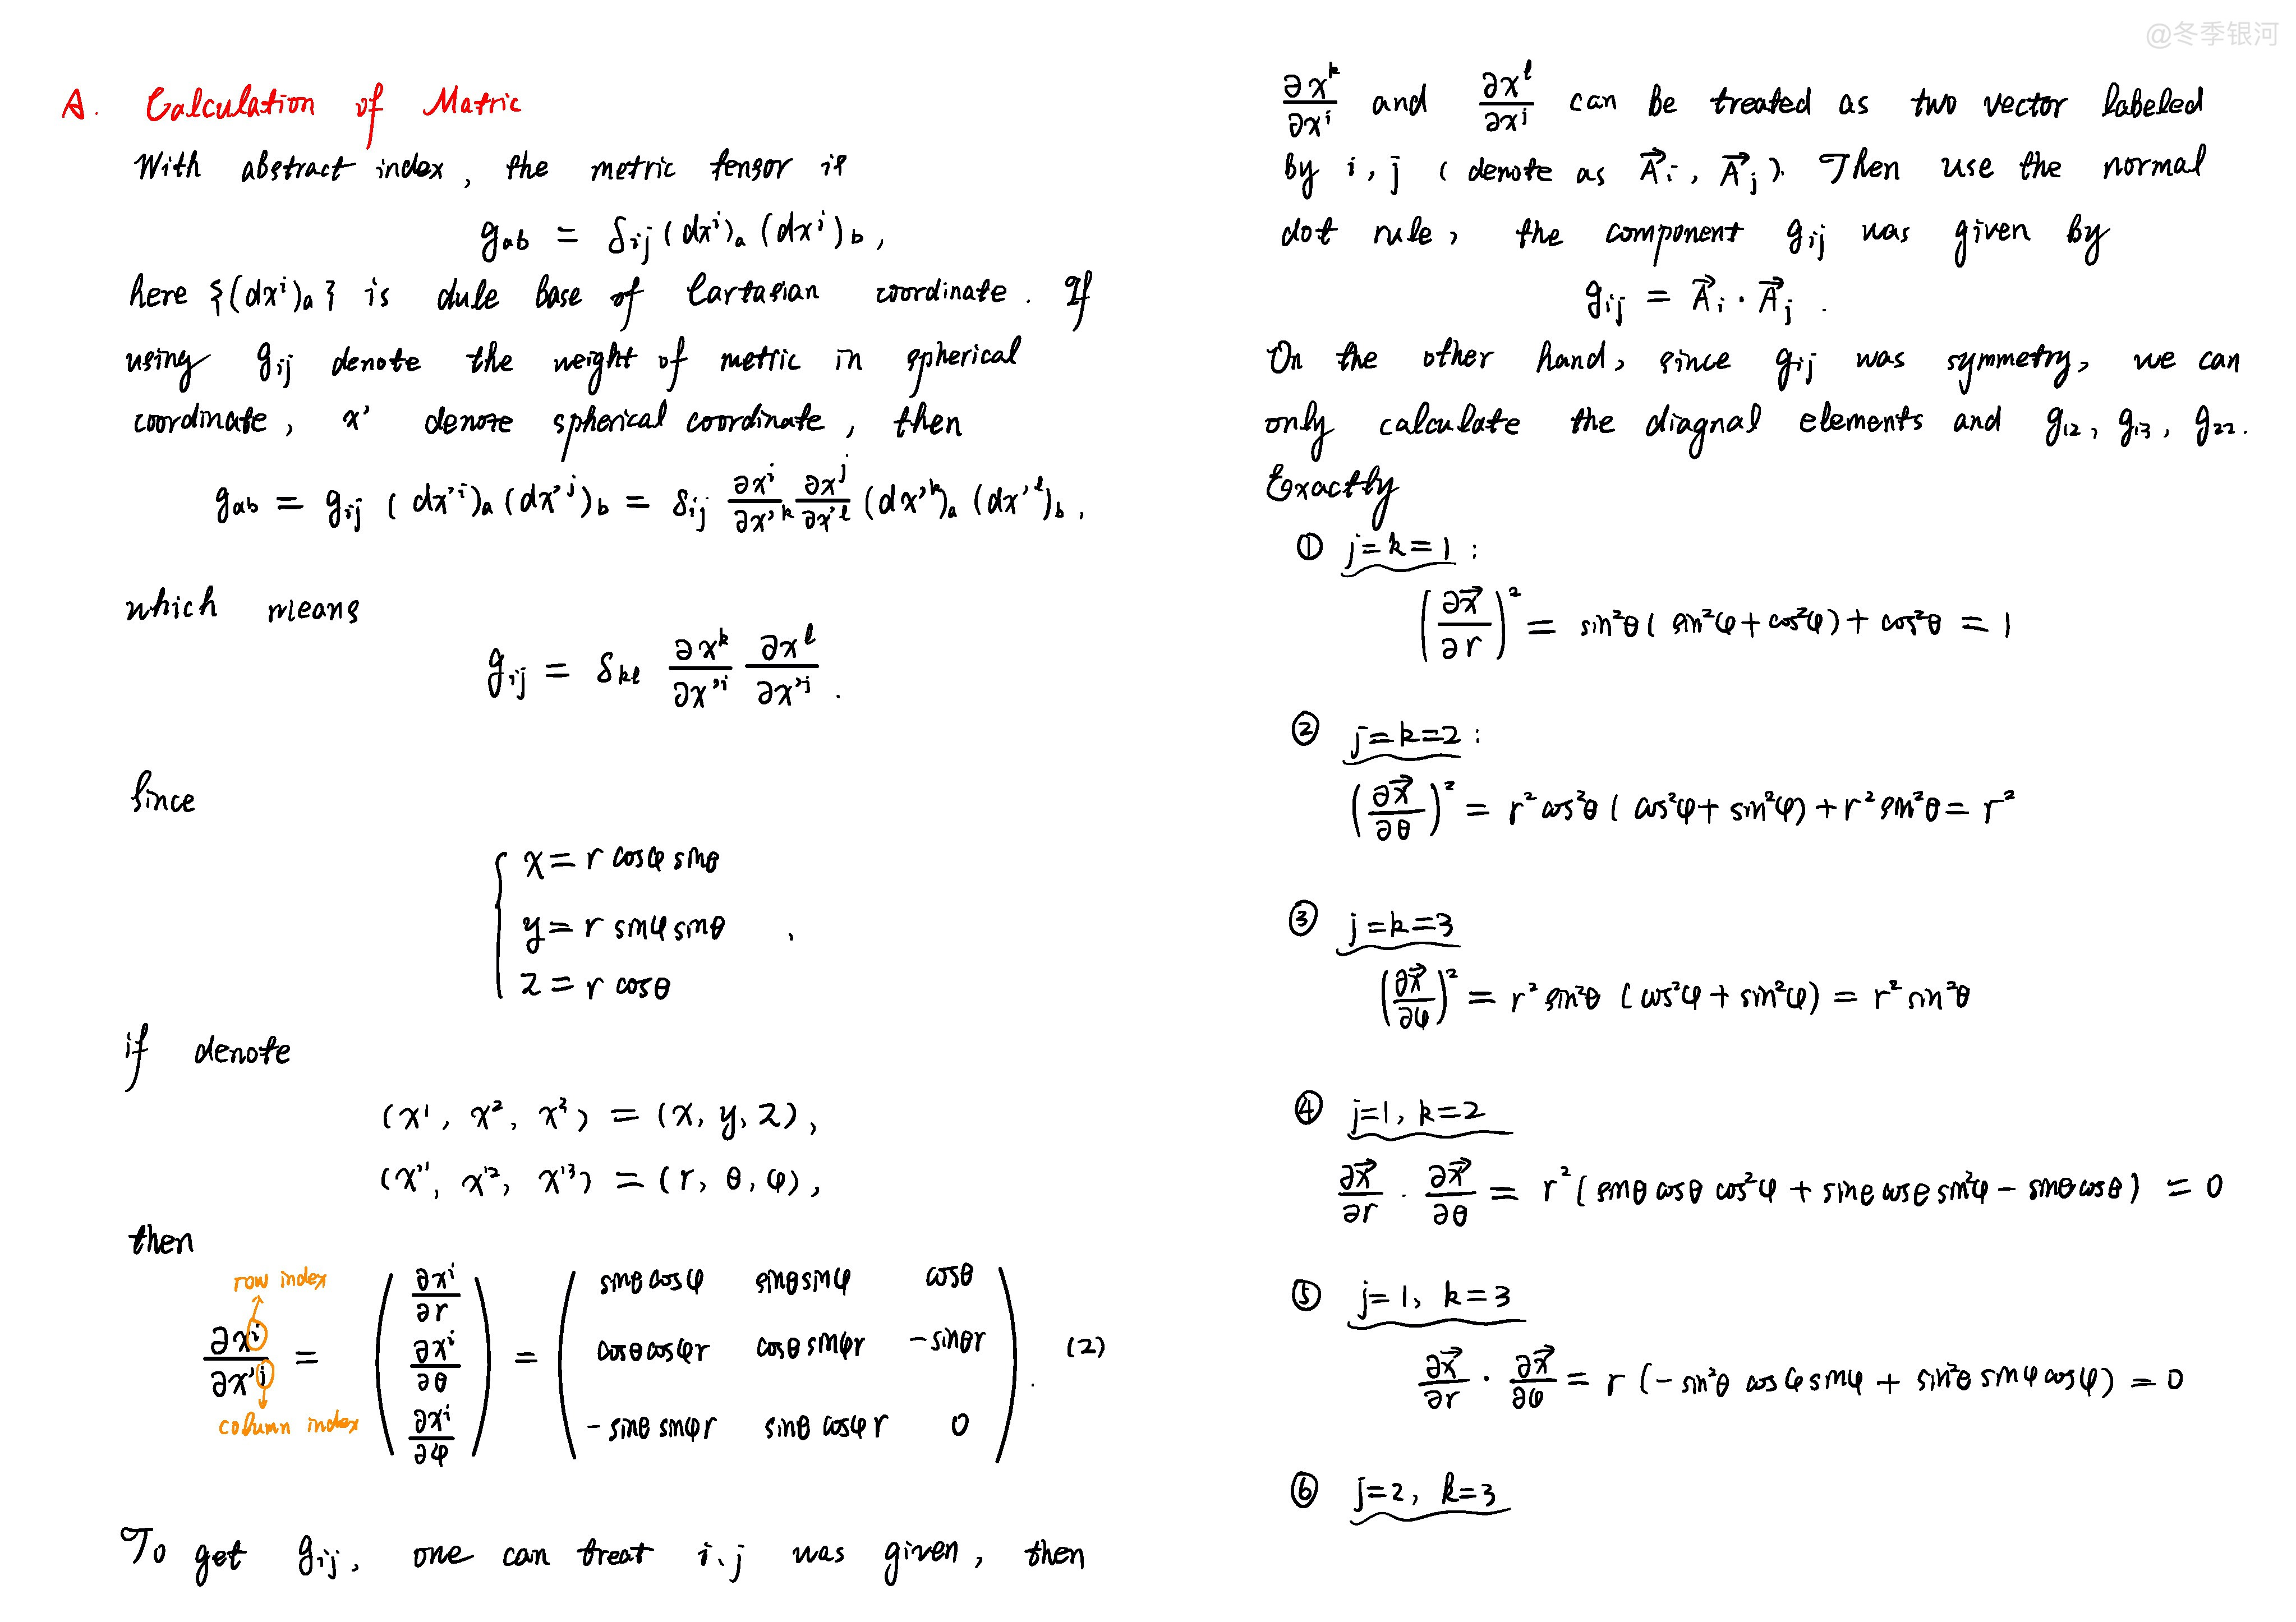 @冬季银河
A. Calculation of Matric
With abstract index, the metric tensor is
g_{ab} = δ_{ij} (dx^i)_a (dx^j)_b ,
here {(dx^i)_a} is dule base of Cartasian coordinate. If
using g_{ij} denote the weight of metric in spherical
coordinate, x' denote spherical coordinate, then
g_{ab} = g_{ij} (dx'^i)_a (dx'^j)_b = δ_{ij} ∂x^i/∂x'^k ∂x^j/∂x'^l (dx'^k)_a (dx'^l)_b ,
which means
g_{ij} = δ_{kl} ∂x^k/∂x'^i ∂x^l/∂x'^j .
Since
x = r cosφ sinθ
y = r sinφ sinθ ,
z = r cosθ
if denote
(x^1, x^2, x^3) = (x, y, z),
(x'^1, x'^2, x'^3) = (r, θ, φ),
then
row index
∂x^i/∂x'^j = ( ∂x^i/∂r ∂x^i/∂θ ∂x^i/∂φ ) = ( sinθ cosφ sinθ sinφ cosθ
cosθ cosφ r cosθ sinφ r -sinθ r
-sinθ sinφ r sinθ cosφ r 0 ) . (2)
column index
To get g_{ij}, one can treat i, j was given, then
∂x^k/∂x^i and ∂x^l/∂x^j can be treated as two vector labeled
by i, j (denote as A⃗_i, A⃗_j). Then use the normal
dot rule, the component g_{ij} was given by
g_{ij} = A⃗_i · A⃗_j .
On the other hand, since g_{ij} was symmetry, we can
only calculate the diagnal elements and g_{12}, g_{13}, g_{22}.
Exactly
① j=k=1 :
(∂x⃗/∂r)² = sin²θ ( sin²φ + cos²φ) + cos²θ = 1
② j=k=2 :
(∂x⃗/∂θ)² = r² cos²θ ( cos²φ + sin²φ) + r² sin²θ = r²
③ j=k=3
(∂x⃗/∂φ)² = r² sin²θ (cos²φ + sin²φ) = r² sin²θ
④ j=1, k=2
∂x⃗/∂r · ∂x⃗/∂θ = r² ( sinθ cosθ cos²φ + sinθ cosθ sin²φ - sinθ cosθ) = 0
⑤ j=1, k=3
∂x⃗/∂r · ∂x⃗/∂φ = r (- sin²θ cosφ sinφ + sin²θ sinφ cosφ) = 0
⑥ j=2, k=3